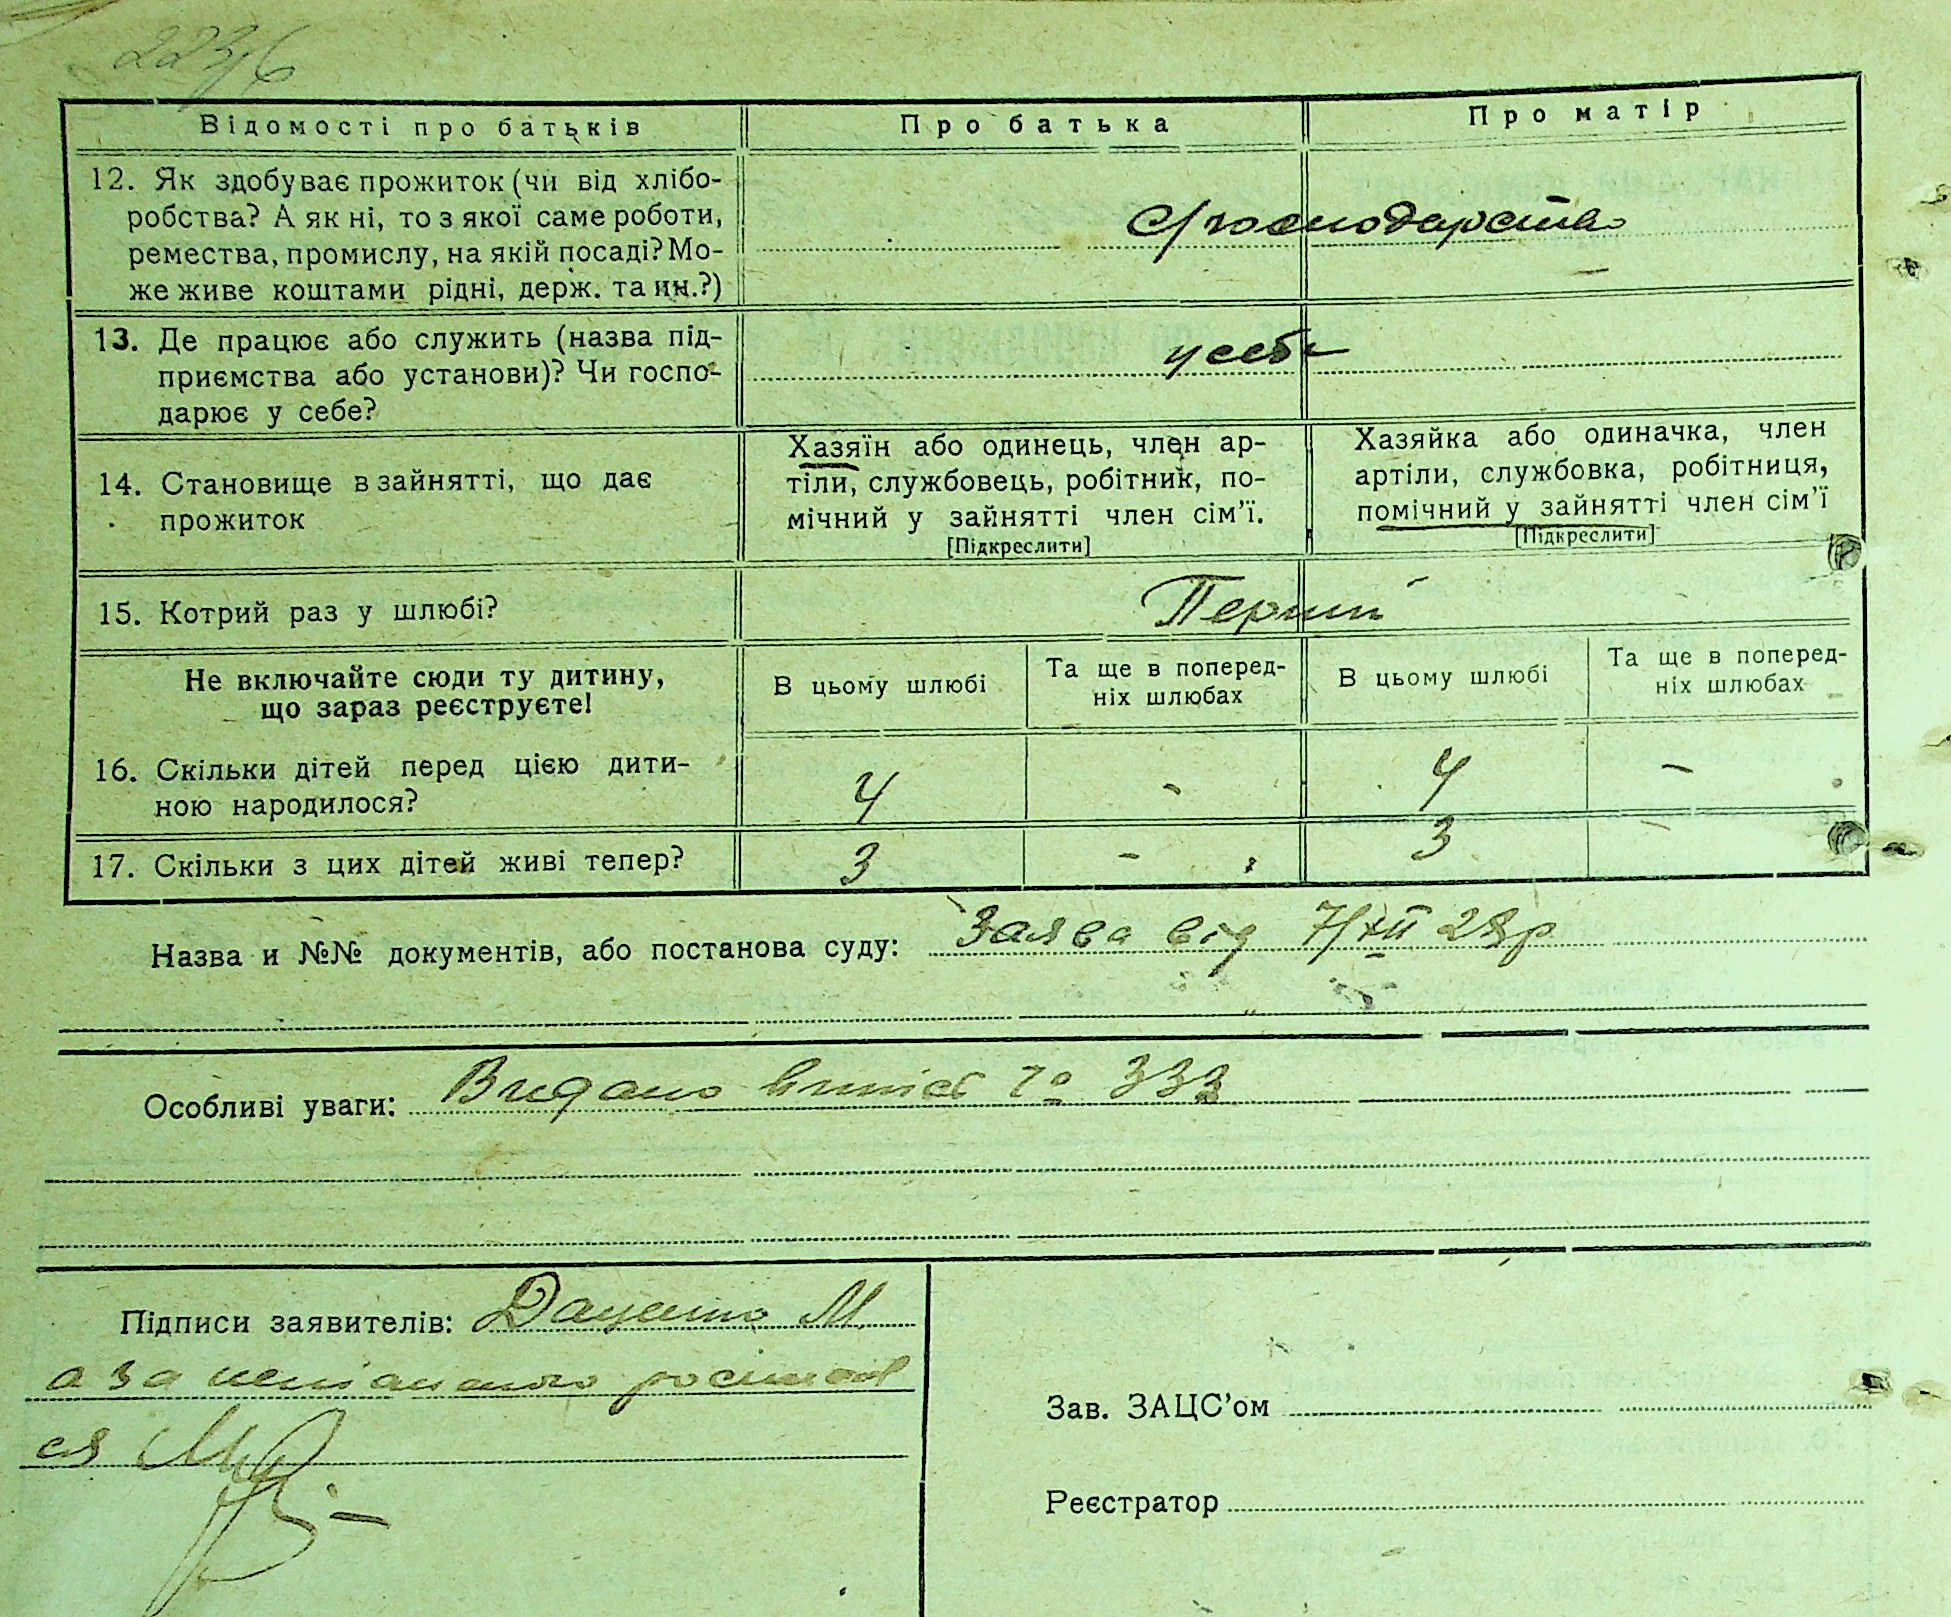 223/6
Відомості про батьків
Про батька
Про матір
12. Як здобуває прожиток (чи від хлібо-
робства? А як ні, то з якої саме роботи,
ремества, промислу, на якій посаді? Мо-
же живе коштами рідні, держ. та ин.?)
С/господарства
13. Де працює або служить (назва під-
приємства або установи)? Чи госпо-
дарює у себе?
у себе
14. Становище в зайнятті, що дає
прожиток
Хазяїн або одинець, член ар-
тіли, службовець, робітник, по-
мічний у зайнятті член сім'ї.
[Підкреслити]
Хазяйка або одиначка, член
артіли, службовка, робітниця,
помічний у зайнятті член сім'ї
[Підкреслити]
15. Котрий раз у шлюбі?
Перший
Не включайте сюди ту дитину,
що зараз реєструєте!
В цьому шлюбі
Та ще в поперед-
ніх шлюбах
В цьому шлюбі
Та ще в поперед-
ніх шлюбах
16. Скільки дітей перед цією дити-
ною народилося?
4 - 4 -
17. Скільки з цих дітей живі тепер?
3 - 3 -
Назва и №№ документів, або постанова суду: Заява від 7/XII 28р
Особливі уваги: Видано випис № 333
Підписи заявителів: Даценко М
а за розписав
ся
Зав. ЗАЦС'ом
Реєстратор